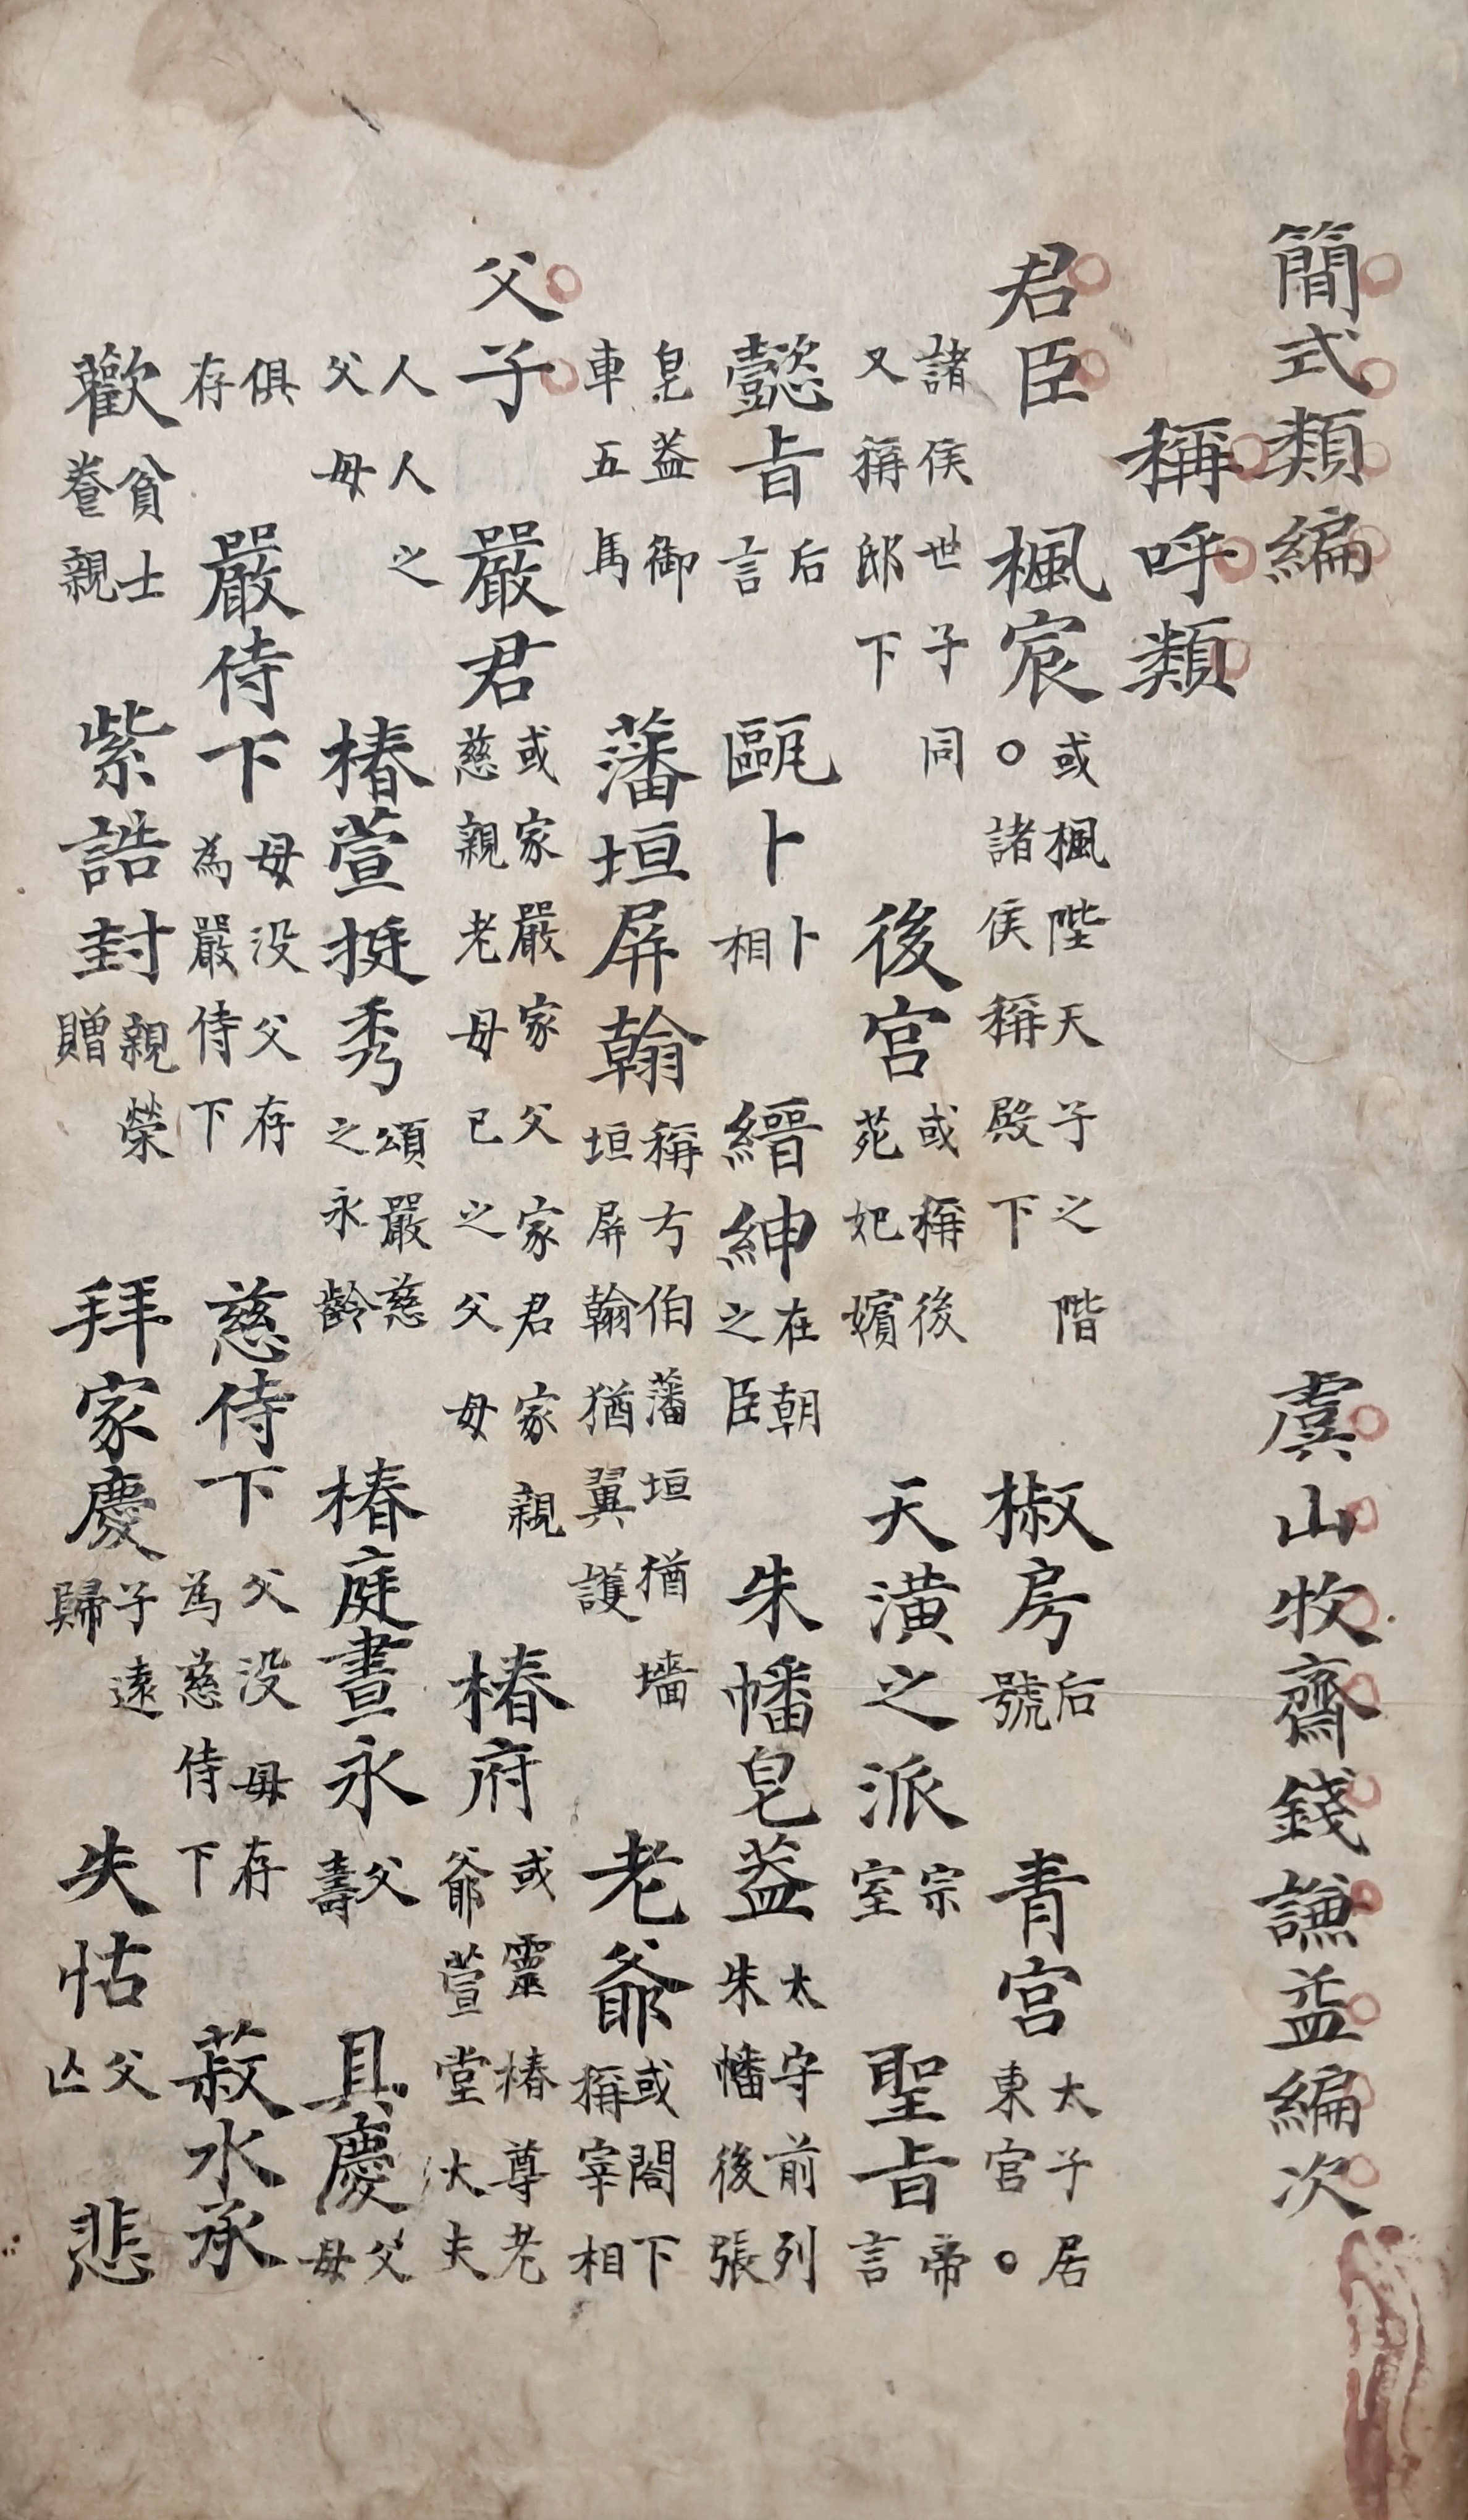 簡式類編 虞山牧齋錢謙益編次
稱呼類
君臣 楓宸 或楓陛天子之階○諸侯稱殿下 椒房 后號 青宮 太子居東宮○
諸侯世子同又稱邸下 後宮 或稱後苑妃嬪 天潢之派 宗室 聖旨 帝言
懿旨 后言 甌卜 卜相 縉紳 在朝之臣 朱幡皂盖 太守前列朱幡後張
皂盖御車五馬 藩垣屏翰 稱方伯藩垣猶墻垣屏翰猶翼護 老爺 或閤下稱宰相
父子 嚴君 或家嚴家父家君家親慈親老母已之父母 椿府 或靈椿尊老爺萱堂大夫
人人之父母 椿萱挺秀 頌嚴慈之永齡 椿庭晝永 父壽 具慶 父母
俱存 嚴侍下 母没父存為嚴侍下 慈侍下 父没母存為慈侍下 菽水承
歡 貧士養親 紫誥封 親榮贈 拜家慶 子遠歸 失怙 父亡 悲